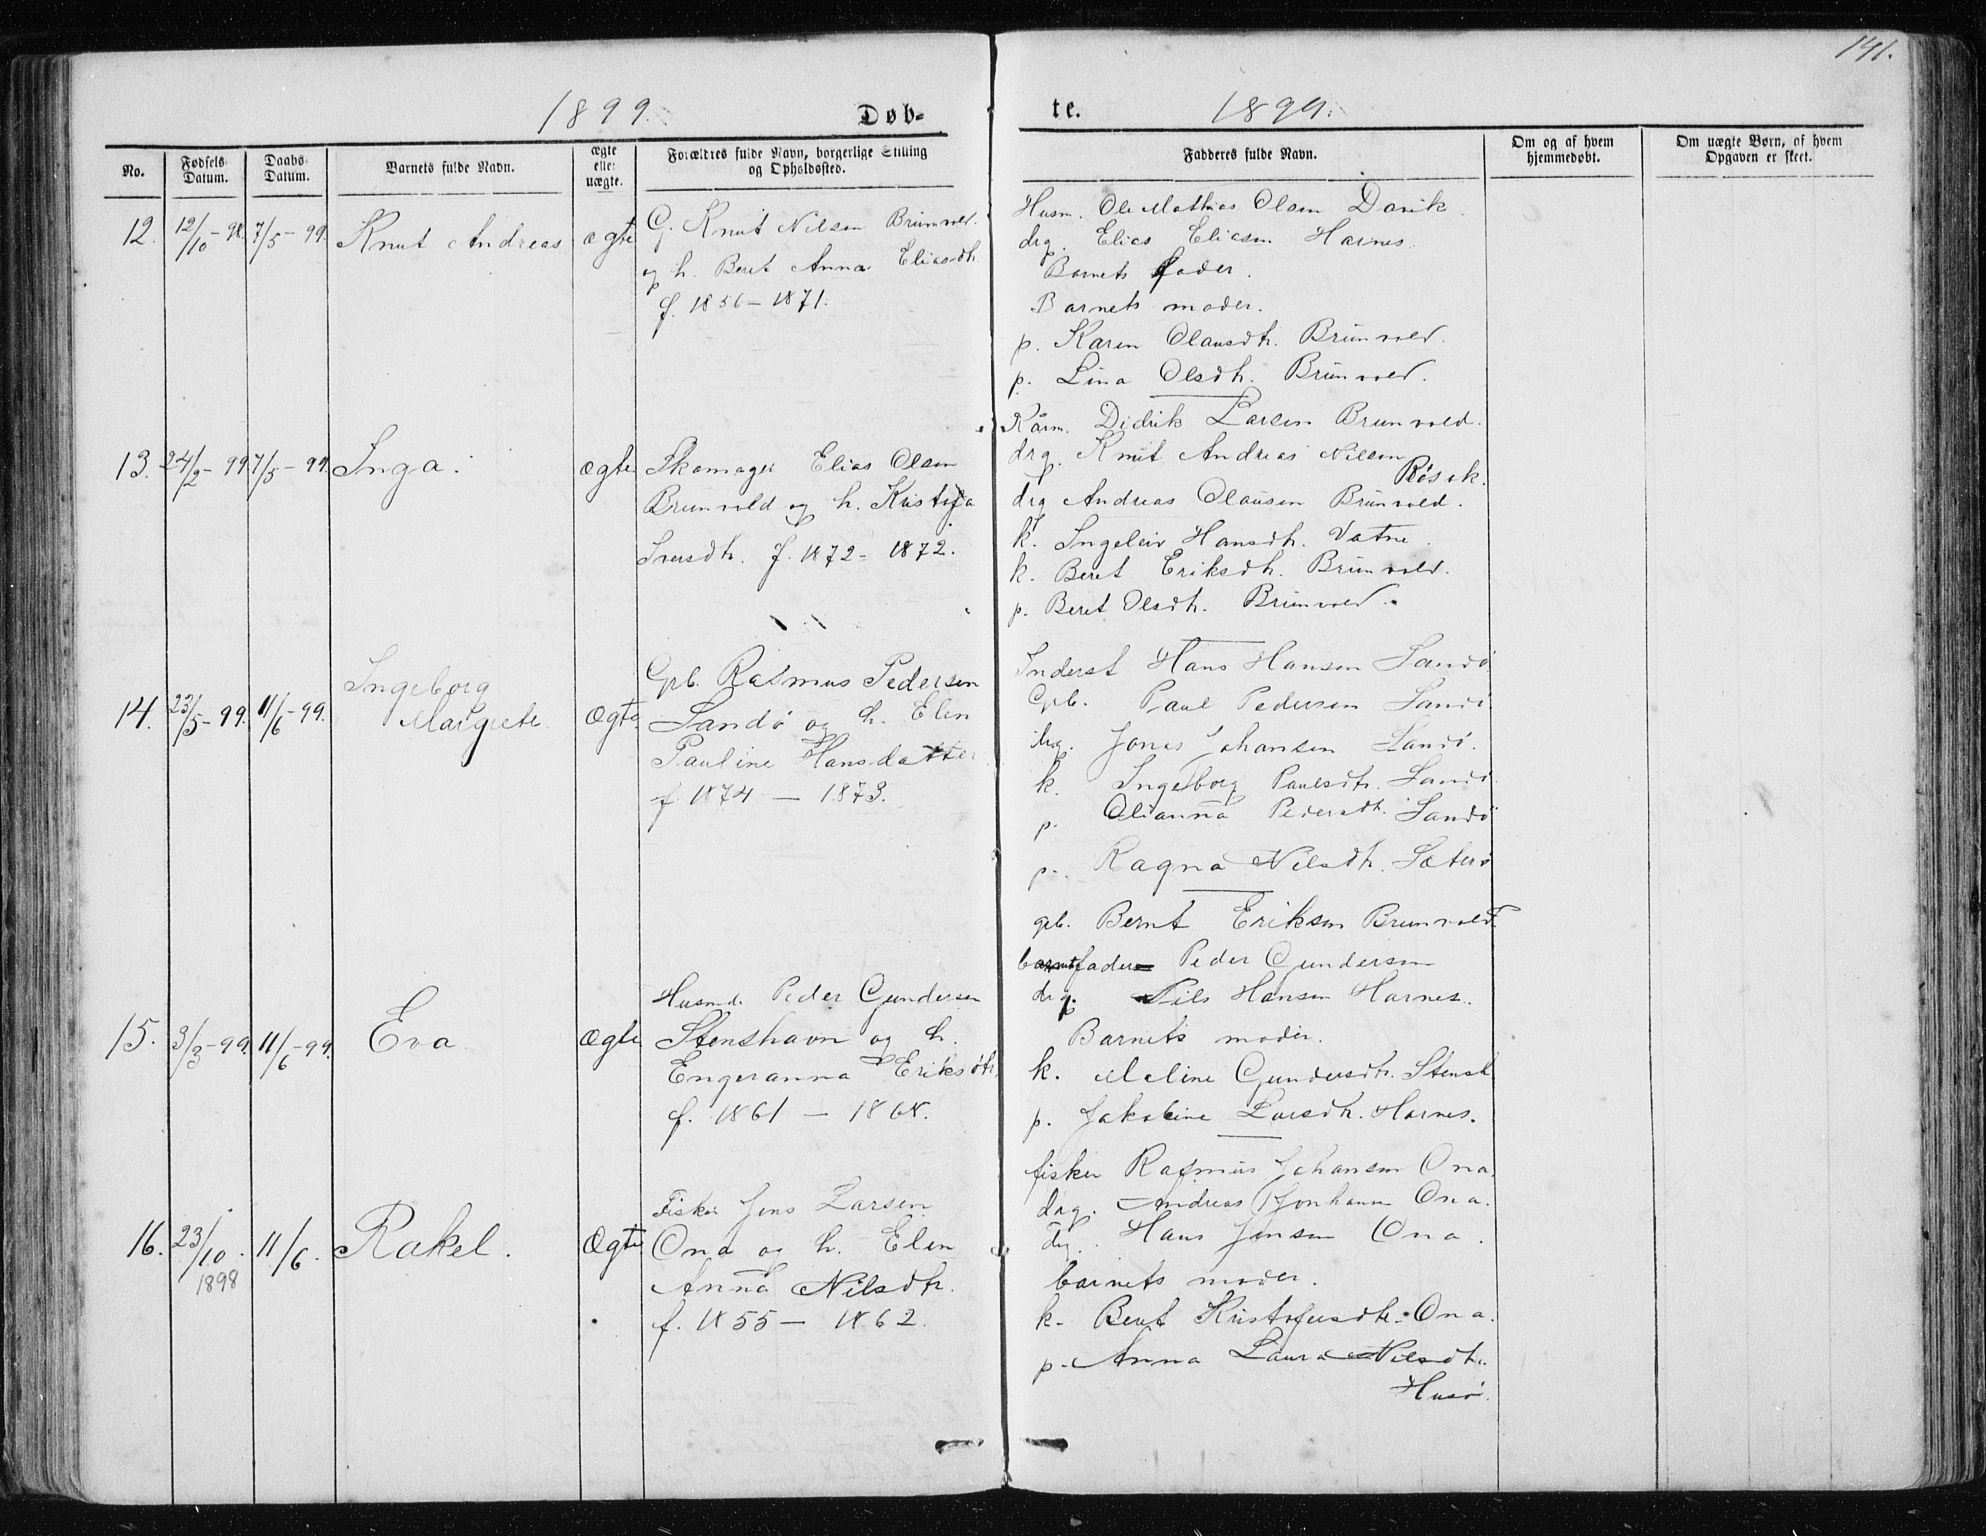 141.
1899. Døb-
te. 1899.
No. Fødsels Datum. Daabs Datum. Barnets fulde Navn. ægte eller uægte. Forældres fulde Navn, borgerlige Stilling og Opholdssted.
Fadderes fulde Navn. Om og af hvem hjemmedøbt. Om uægte Børn, af hvem Opgaven er skeet.
12. 12/10-98. 7/5-99. Knut Andreas ægte G. Knut Nilsen Brunvold.
og h. Beret Anna Eliasdh.
f. 1856-1871.
Husm. Ole Mathias Olsen
drg. Elias Eliasen Harnes.
Barnets fader.
Barnets moder.
p. Karen Olausdh. Brunvold.
p. Lina Olsdh. Brunvold.
13. 24/2-99 7/5-99. Inga. ægte Skomager Elias Olsen
Brunvold og h.
Iversdh. f. 1872- 1872.
Kårm. Didrik Larsen Brunvold.
drg. Knut Andreas Nilsen
Røsok.
drg Andreas Olausen Brunvold.
k. Ingeleiv Hansdh. Vatne.
k. Beret Eriksdh. Brunvold.
p. Beret Olsdh. Brunvold.
14. 23/5-99. 11/6-99. Ingeborg
Margrete ægte. Gpb. Rasmus Pedersen
Sandø og h. Elen
Pauline Hansdatter
f 1874 — 1873.
Inderst Hans Hansen Sandø
Gpb. Paul Pedersen Sandø
drg. Jonas Johansen Sandø.
k. Ingeborg Paulsdtr. Sandø
p. Olianna Pedersdh. Sandø
p. Ragna Nilsdh. Sæterø
15. 3/3-99. 11/6-99. Eva. ægte Husmd. Peder Gundersen
Stenshavn og h.
Engeranna Eriksdtr.
f. 1861 — 1868.
gpb. Bernt Eriksen Brunvold.
fader Peder Gundersen
drg. Nils Hansen Harnes.
Barnets moder.
k. Maline Gundersdtr. Stensh.
p. Jakobine Larsdh. Harnes.
16. 23/10. 1898 11/6. Rakel. ægte Fisker Jens Larsen
Ona og h. Elen
Anna Nilsdh.
f. 1855 — 1862.
fisker Rasmus Johansen Ona.
drg. Andreas Ona.
drg. Hans Jensen Ona.
barnets moder.
k. Berit Kristofersdtr. Ona.
p. Anna Laura Nilsdh.
Husø.